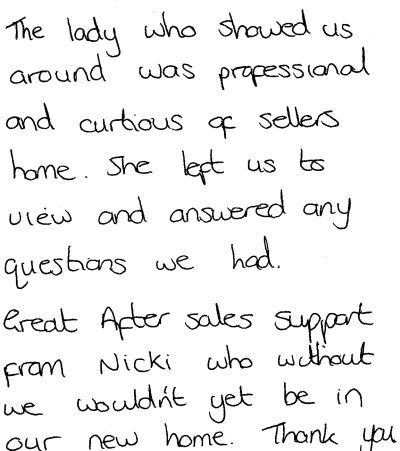 The lady who showed us
around was professional
and curtious of sellers
home. She left us to
view and answered any
questions we had.
Great After sales support
from Nicki who without
we wouldn't yet be in
our new home. Thank you